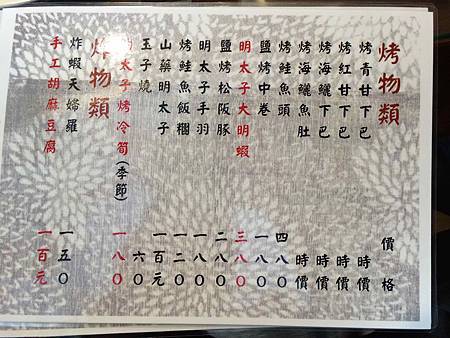 烤物類 價格
烤青甘下巴 時價
烤紅甘下巴 時價
烤海鱺下巴 時價
烤海鱺魚肚 時價
烤鮭魚頭 四八0
鹽烤中卷 一八0
明太子大明蝦 三八0
鹽烤松阪豚 二八0
明太子手羽 一八0
烤鮭魚飯糰 一二0
山藥明太子 一百元
玉子燒 六0
明太子烤冷筍(季節) 一八0
炸物類
炸蝦天婦羅 一五0
手工胡麻豆腐 一百元